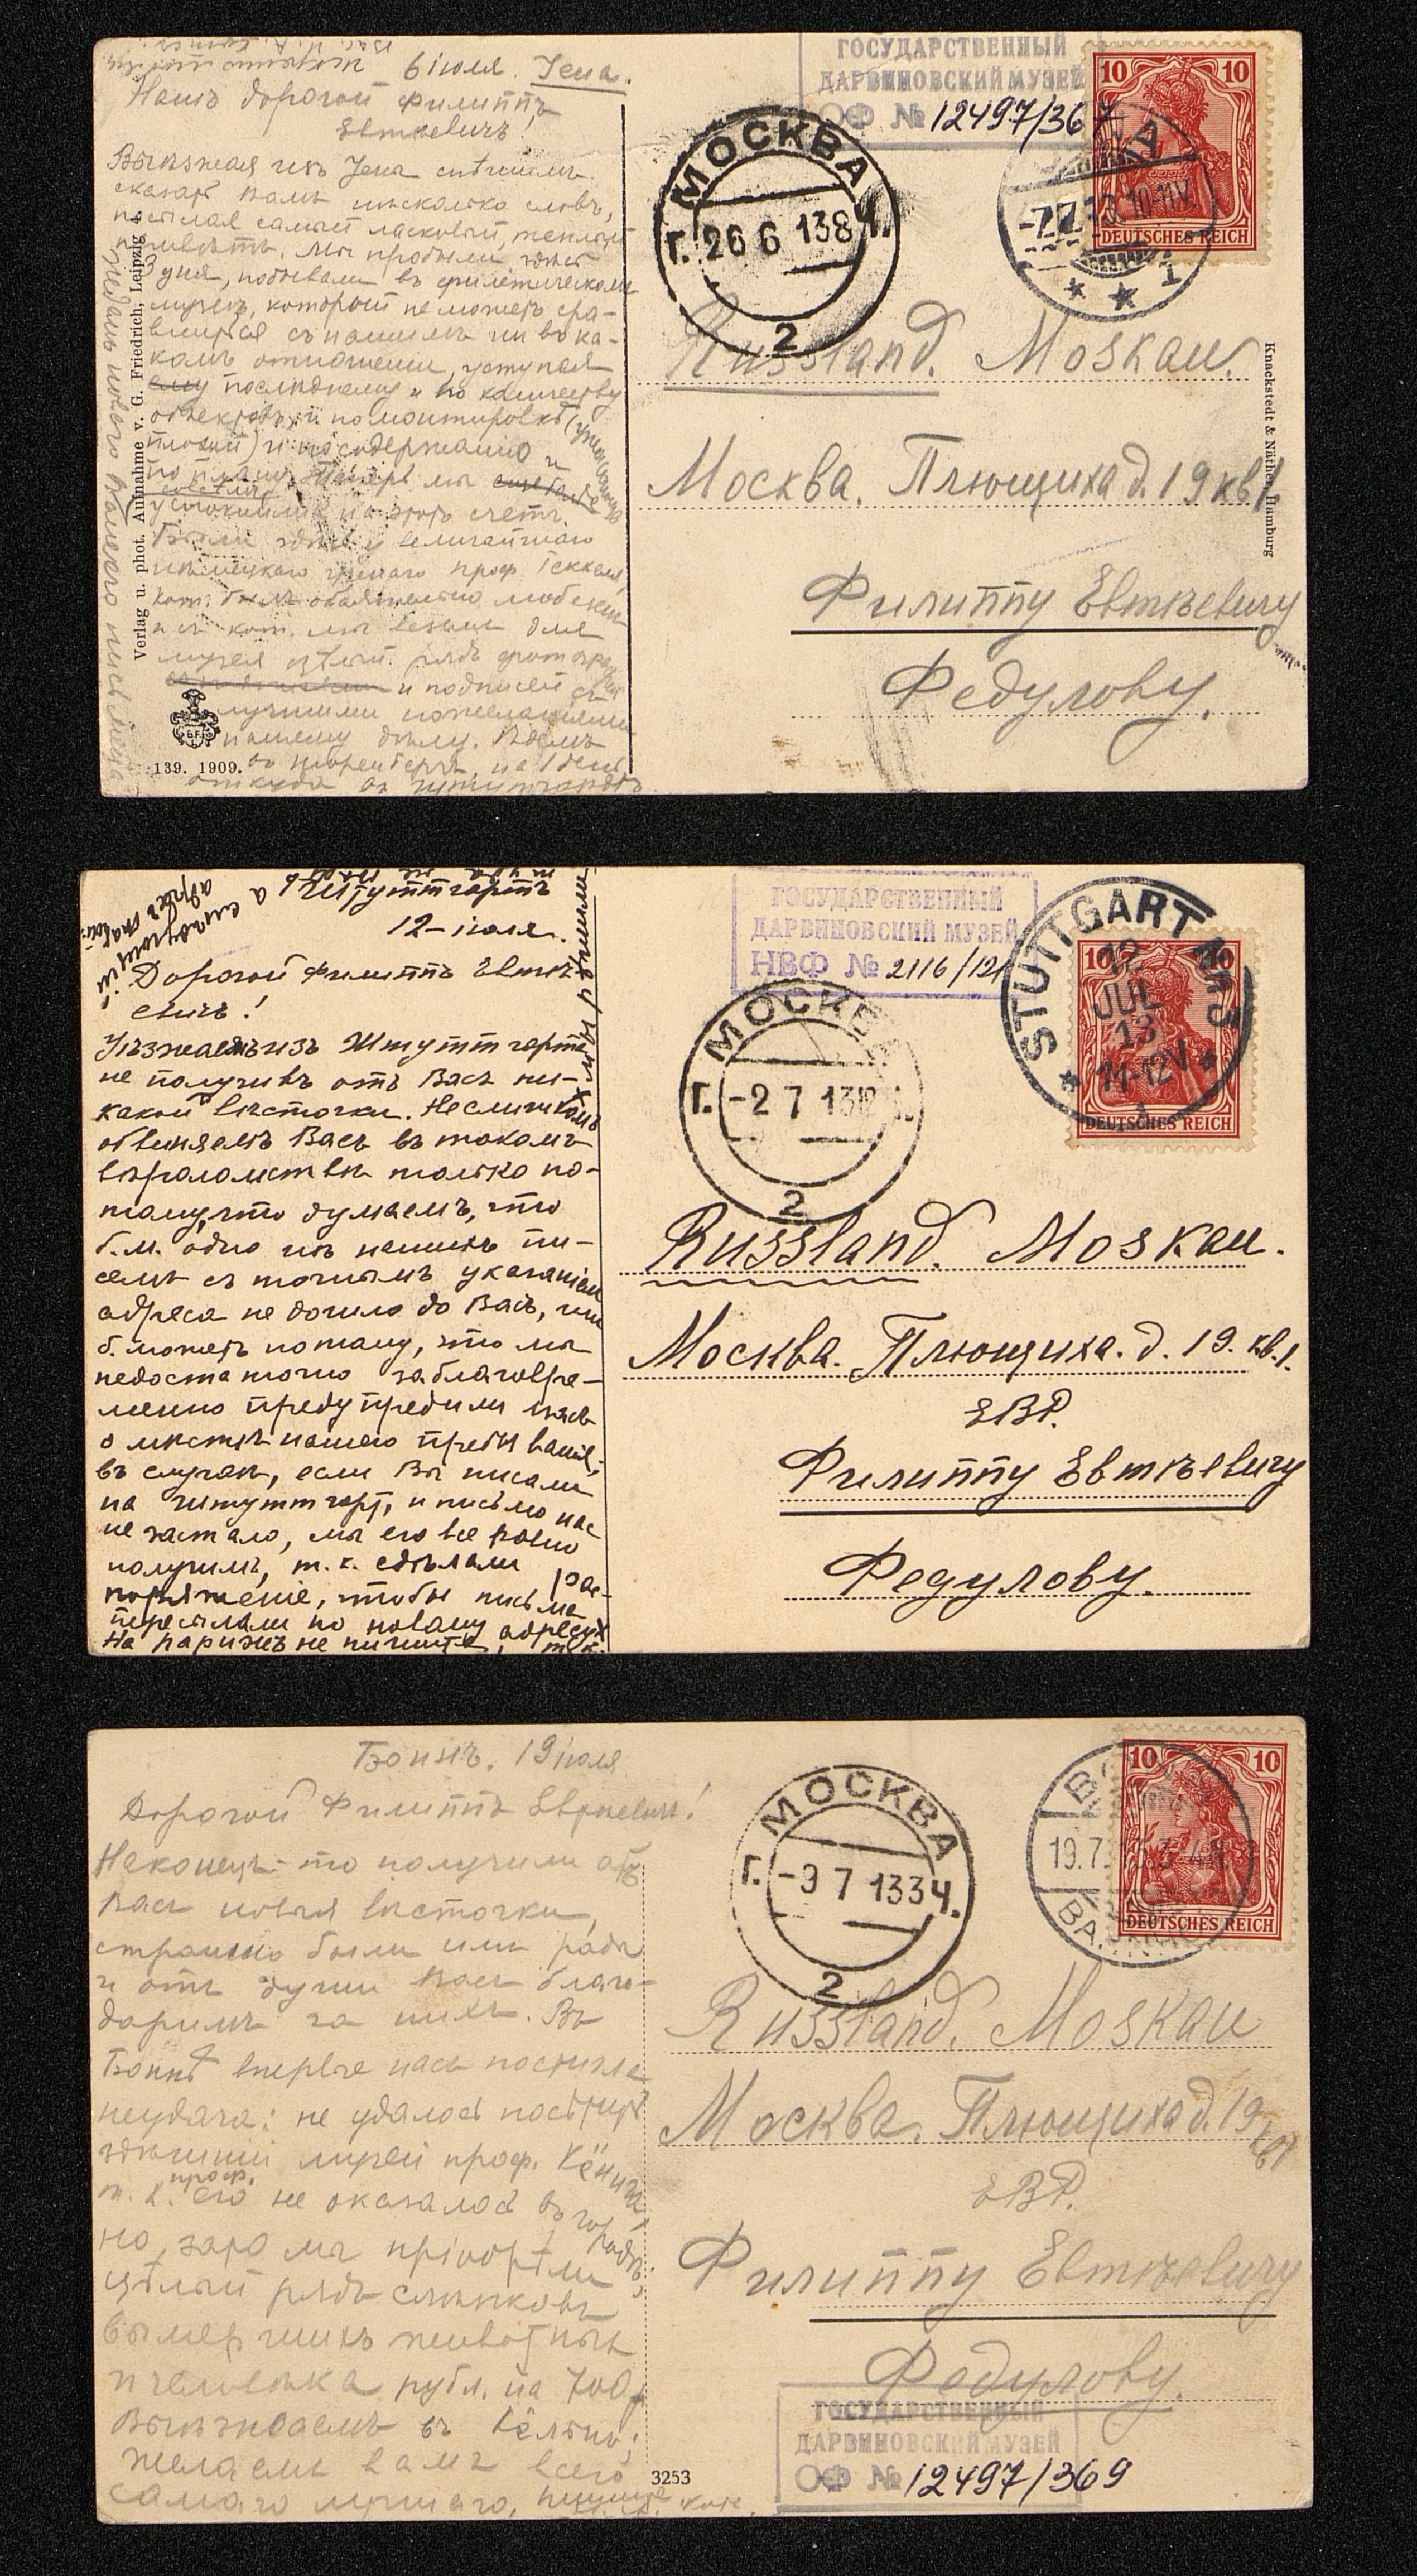 6 іюля. Јена.
Нашъ дорогой Филиппъ
Евтѣевичъ!
Выѣзжая изъ Јена спѣшимъ
сказать Вамъ нѣсколько словъ,
посылая самый ласковый, теплый
привѣтъ. Мы пробыли здѣсь
3 дня, побывали въ филетическомъ
музеѣ, который не можетъ сра-
вниться съ нашимъ ни въ ка-
комъ отношеніи, уступая
послѣднему и по количеству
объектовъ, и по монтировкѣ
плохой) и по содержанію и
по плану. Теперь мы
успокоились на этотъ счетъ.
Были здѣсь у величайшаго
нѣмецкаго ученаго проф. Геккеля,
кот. былъ обаятельно любезенъ
и съ кот. мы веземъ для
музея цѣлый рядъ фотографій
и подписей съ
лучшими пожеланіями
нашему дѣлу. Ѣдемъ
въ Нюренбергъ, на 1 день
откуда въ Штуттгардтъ
Ждемъ новаго Вашего письмеца
Verlag u. phot. Aufnahme v. G. Friedrich, Leipzig
139. 1909.
ГОСУДАРСТВЕННЫЙ
ДАРВИНОВСКИЙ МУЗЕЙ
ОФ № 12497/367
МОСКВА
Г. 26 6 13 8 Ч.
2
10 10
DEUTSCHES REICH
-7.7.13. 10-11V.
* * 1
Russland. Moskau.
Москва. Плющиха д. 19 кв. 1
Филиппу Евтѣевичу
Федулову.
Knackstedt & Näther, Hamburg
Штуттгартъ
12 іюля.
Дорогой Филиппъ Евтѣ-
евичъ!
Уѣзжаемъ изъ Штуттгарта
не получивъ отъ Васъ ни-
какой вѣсточки. Не слишкомъ
обвиняемъ Васъ въ такомъ
вѣроломствѣ только по-
тому, что думаемъ, что
б.м. одно изъ нашихъ пи-
семъ съ точнымъ указаніемъ
адреса не дошло до Васъ, или
б. можетъ потому, что мы
недостаточно заблаговре-
менно предупредили Васъ
о мѣстѣ нашего пребыванія;
въ случаѣ, если Вы писали
на Штуттгартъ, и письмо нас
не застало, мы его все равно
получимъ, т. к. сдѣлали рас-
поряженіе, чтобы письма
пересылали по новому адресу.
На Парижъ не пишите, т. к.
а слѣдующій
адресъ таковъ:
ГОСУДАРСТВЕННЫЙ
ДАРВИНОВСКИЙ МУЗЕЙ
НВФ № 2116/121
МОСКВА
Г. -2 7 13
2
STUTTGART
12
JUL
13
11-12V
10 10
DEUTSCHES REICH
Russland. Moskau.
Москва. Плющиха. д. 19. кв. 1.
ЕВР.
Филиппу Евтѣевичу
Федулову.
Боннъ. 19 іюля
Дорогой Филиппъ Евтѣевичъ!
Наконецъ-то получили отъ
Васъ новыя вѣсточки,
страшно были имъ рады
и отъ души Васъ благо-
даримъ за нихъ. Въ
Боннѣ впервые насъ постигла
неудача: не удалось посѣтить
здѣшній музей проф. Кёнига,
т. к. проф. его не оказалось въ городѣ;
но зато мы пріобрѣли
цѣлый рядъ слѣпковъ
вымершихъ животныхъ
и человѣка рубл. на 700,
Выѣзжаемъ въ Кёльнъ;
желаемъ Вамъ всего
самаго лучшаго,
3253
МОСКВА
Г. -9 7 13 3 Ч.
2
19.7.
10 10
DEUTSCHES REICH
Russland. Moskau
Москва. Плющиха д. 19 кв 1
ЕВР.
Филиппу Евтѣевичу
Федулову.
ГОСУДАРСТВЕННЫЙ
ДАРВИНОВСКИЙ МУЗЕЙ
ОФ № 12497/369